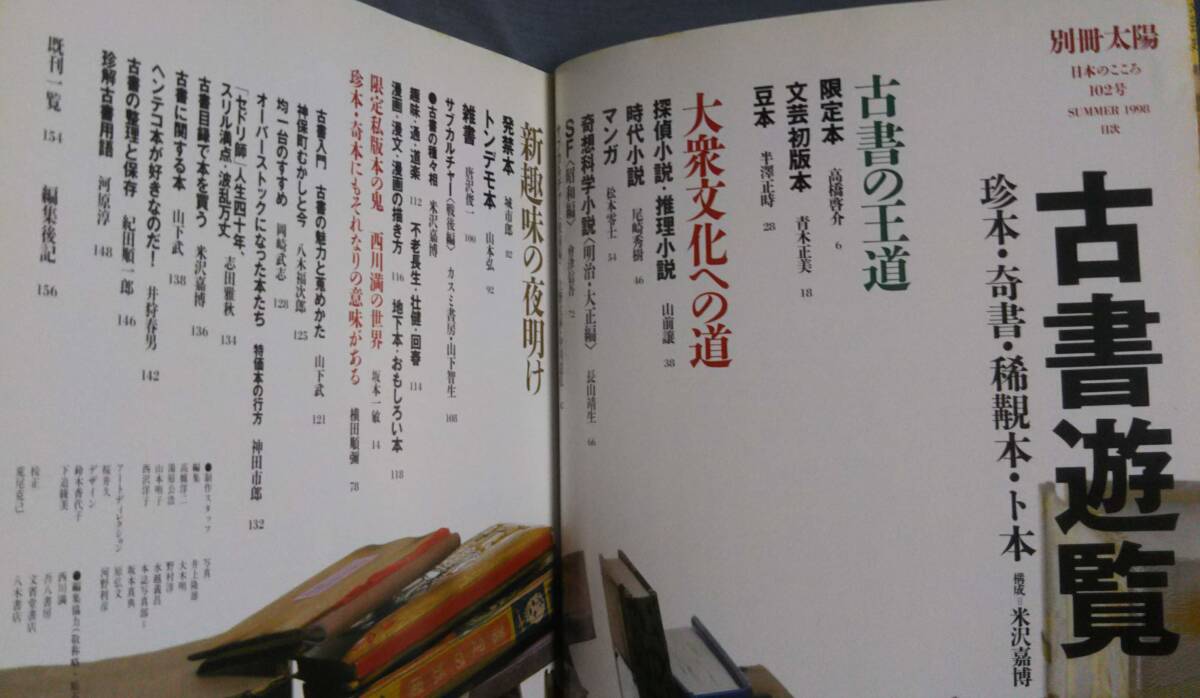 別冊太陽
日本のこころ
102号
SUMMER 1998
目次
古書遊覧
珍本・奇書・稀覯本・ト本
構成=米沢嘉博
古書の王道
限定本 高橋啓介 6
文芸初版本 青木正美 18
豆本 半澤正時 28
大衆文化への道
探偵小説・推理小説 山前譲 38
時代小説 尾崎秀樹 46
マンガ 松本零士 54
奇想科学小説〈明治・大正編〉 長山靖生 66
SF〈昭和編〉 會津信吾 72
新趣味の夜明け
発禁本 城市郎 82
トンデモ本 山本弘 92
雑書 唐沢俊一 100
サブカルチャー〈戦後編〉 カスミ書房・山下智生 108
●古書の種々相 米沢嘉博
趣味・通・道楽 112 不老長生・壮健・回春 114
漫画・漫文・漫画の描き方 116 地下本・おもしろい本 118
限定私版本の鬼 西川満の世界 坂本一敏 14
珍本・奇本にもそれなりの意味がある 横田順彌 78
古書入門 古書の魅力と蒐めかた 山下武 121
神保町むかしと今 八木福次郎 125
均一台のすすめ 岡崎武志 128
オーバーストックになった本たち 特価本の行方 神田市郎 132
「セドリ師」人生四十年、
スリル満点・波乱万丈 志田雅秋 134
古書目録で本を買う 米沢嘉博 136
古書に関する本 山下武 138
ヘンテコ本が好きなのだ! 井狩春男 142
古書の整理と保存 紀田順一郎 146
珍解古書用語 河原淳 148
既刊一覧 154 編集後記 156
●制作スタッフ
編集
高橋洋二
湯原公浩
山本明子
西沢洋子
アートディレクション
桜井久
デザイン
鈴木香代子
下道綾美
校正
栗尾克己
写真
井上隆雄
大木明
野村淳
水越義昌
本誌写真部=
坂本真典
原弘文
河野利彦
●編集協力(敬称略・
西川満
吾八書房
文省堂書店
八木書店